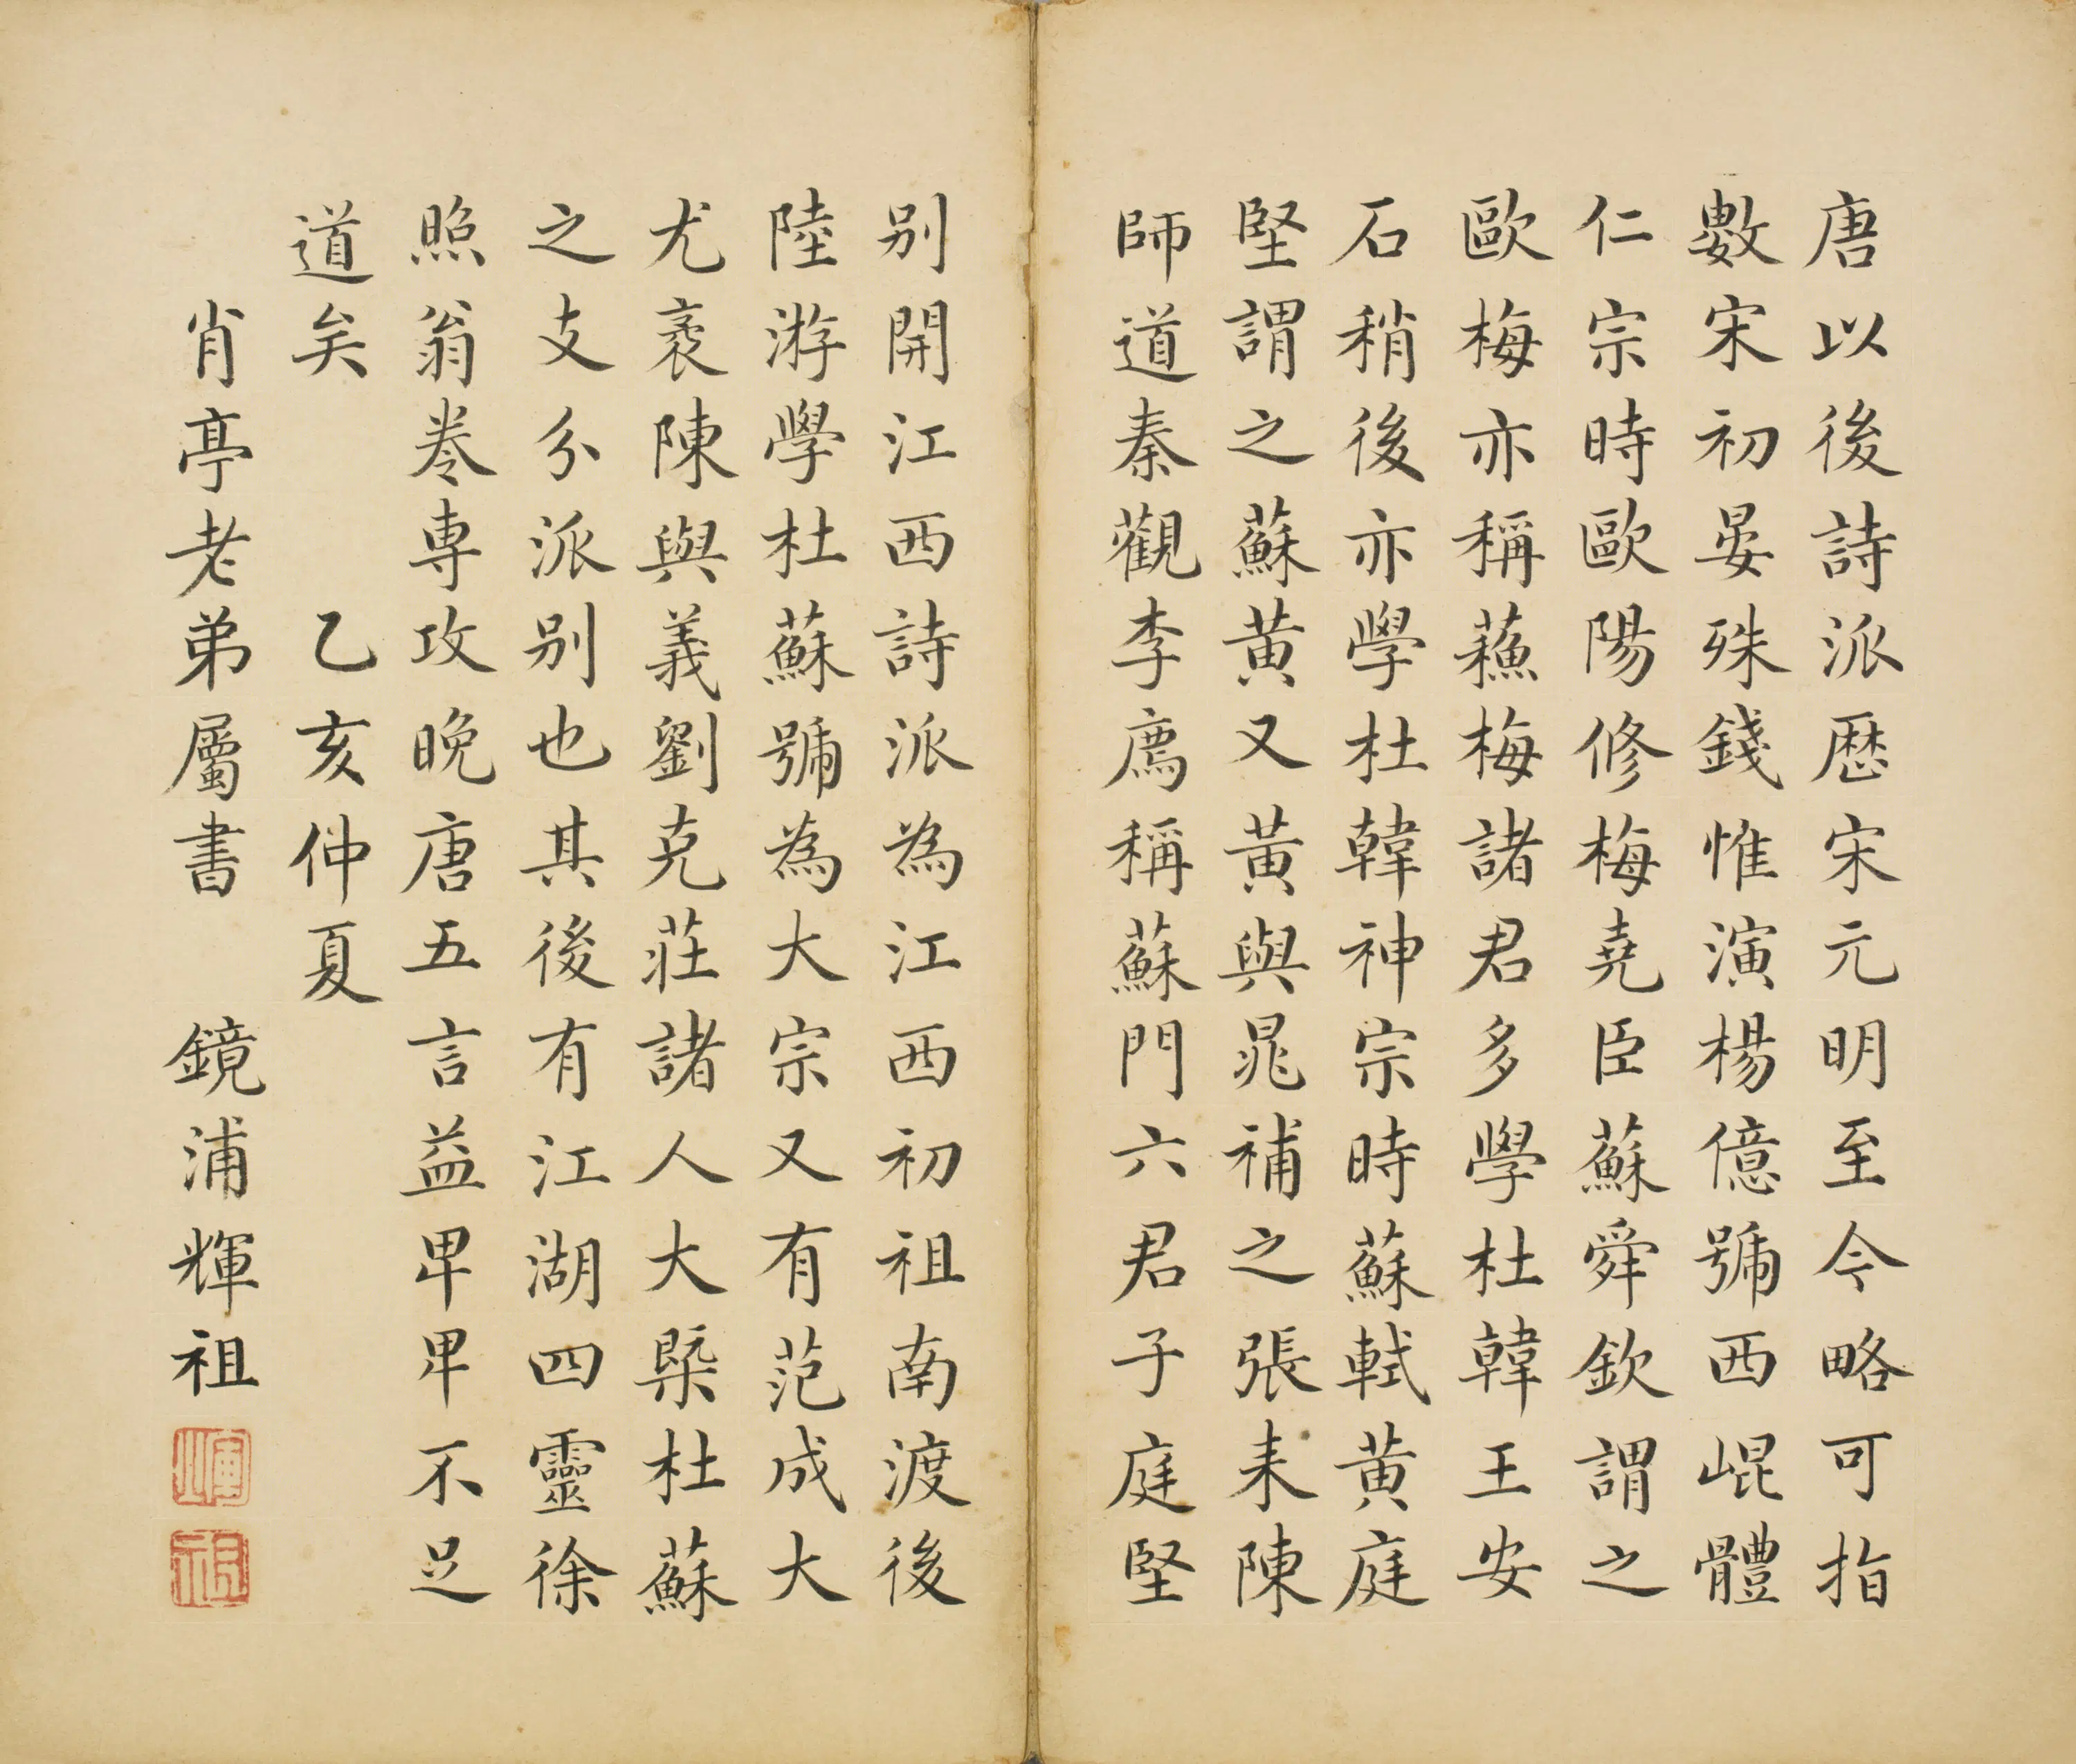 唐以後詩派歷宋元明至今略可指
數宋初晏殊錢惟演楊億號西崐體
仁宗時歐陽修梅堯臣蘇舜欽謂之
歐梅亦稱蘓梅諸君多學杜韓王安
石稍後亦學杜韓神宗時蘇軾黃庭
堅謂之蘇黃又黃與晁補之張耒陳
師道秦觀李廌稱蘇門六君子庭堅
别開江西詩派為江西初祖南渡後
陸游學杜蘇號為大宗又有范成大
尤袤陳與義劉克莊諸人大槩杜蘇
之支分派别也其後有江湖四靈徐
照翁卷専攻晚唐五言益卑卑不足
道矣　乙亥仲夏
肖亭老弟屬書　鏡浦輝祖
輝
祖